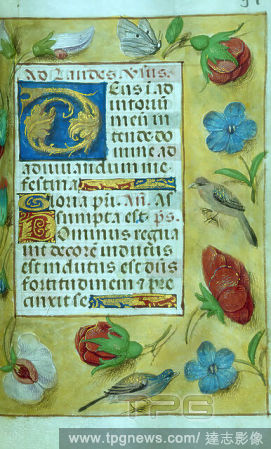 Ad Laudes. Versus.
Deus i ad
iutoriũ
meũ in
tende do
mine ad
adiuuandum me
festina
Gloria pr̃i. Añ. As
sumpta est. p̃s.
Dominus regna
uit decorẽ indutus
est indutus est dñs
fortitudinem & pre
cinxit se
TPG
www.tpgnews.com / 達志影像